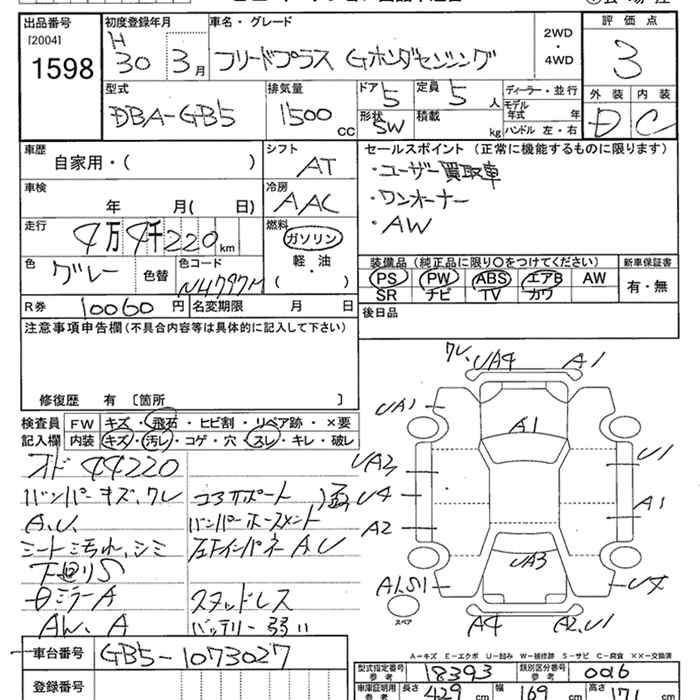 出品番号
[2004]
1598
初度登録年月
H 30 3月
車名・グレード
フリードプラス Gホンダセンシング
2WD
・
4WD
評価点
3
外装 内装
D C
型式
DBA-GB5
排気量
1500 CC
ドア 5
形状 SW
定員 5 人
積載 kg
ディーラー・並行
モデル年式 年
ハンドル 左・右
車歴
自家用・( )
シフト
AT
車検
年 月( 日)
冷房
AAC
走行
4万4千220km
燃料
ガソリン
軽・油
( )
色
グレー
色替
色コード
R券 10060円
名変期限 月 日
セールスポイント(正常に機能するものに限ります)
・ユーザー買取車
・ワンオーナー
・AW
装備品(純正品に限り○をつけてください)
PS PW ABS エアB AW
SR ナビ TV カワ
新車保証書
有・無
後日品
注意事項申告欄(不具合内容等は具体的に記入して下さい)
修復歴 有〔箇所 〕
検査員記入欄
FW キズ・飛石・ヒビ割・リペア跡・×要
内装 キズ・汚レ・コゲ・穴・スレ・キレ・破レ
オド 44220
バンパーキズ、ワレ
A.U.
シート汚れ、シミ
下回りS
ミラーA
AW.A
コアサポート
バンパーホースメント
インパネA.U
スタッドレス
バッテリー弱い
ワレ
UA4
A1
UA1
A1
UA3
U4
A2
U1
A1
UA3
A1.S1
A4
A2.U1
スペア
A－キズ E－エクボ U－凹み W－補修跡 S－サビ C－腐食 ××－交換済
車台番号
GB5-1073027
登録番号
型式指定番号 参考
18393
類別区分番号 参考
0016
車庫証明用 参考
長さ 429 cm
幅 169 cm
高さ 171 cm